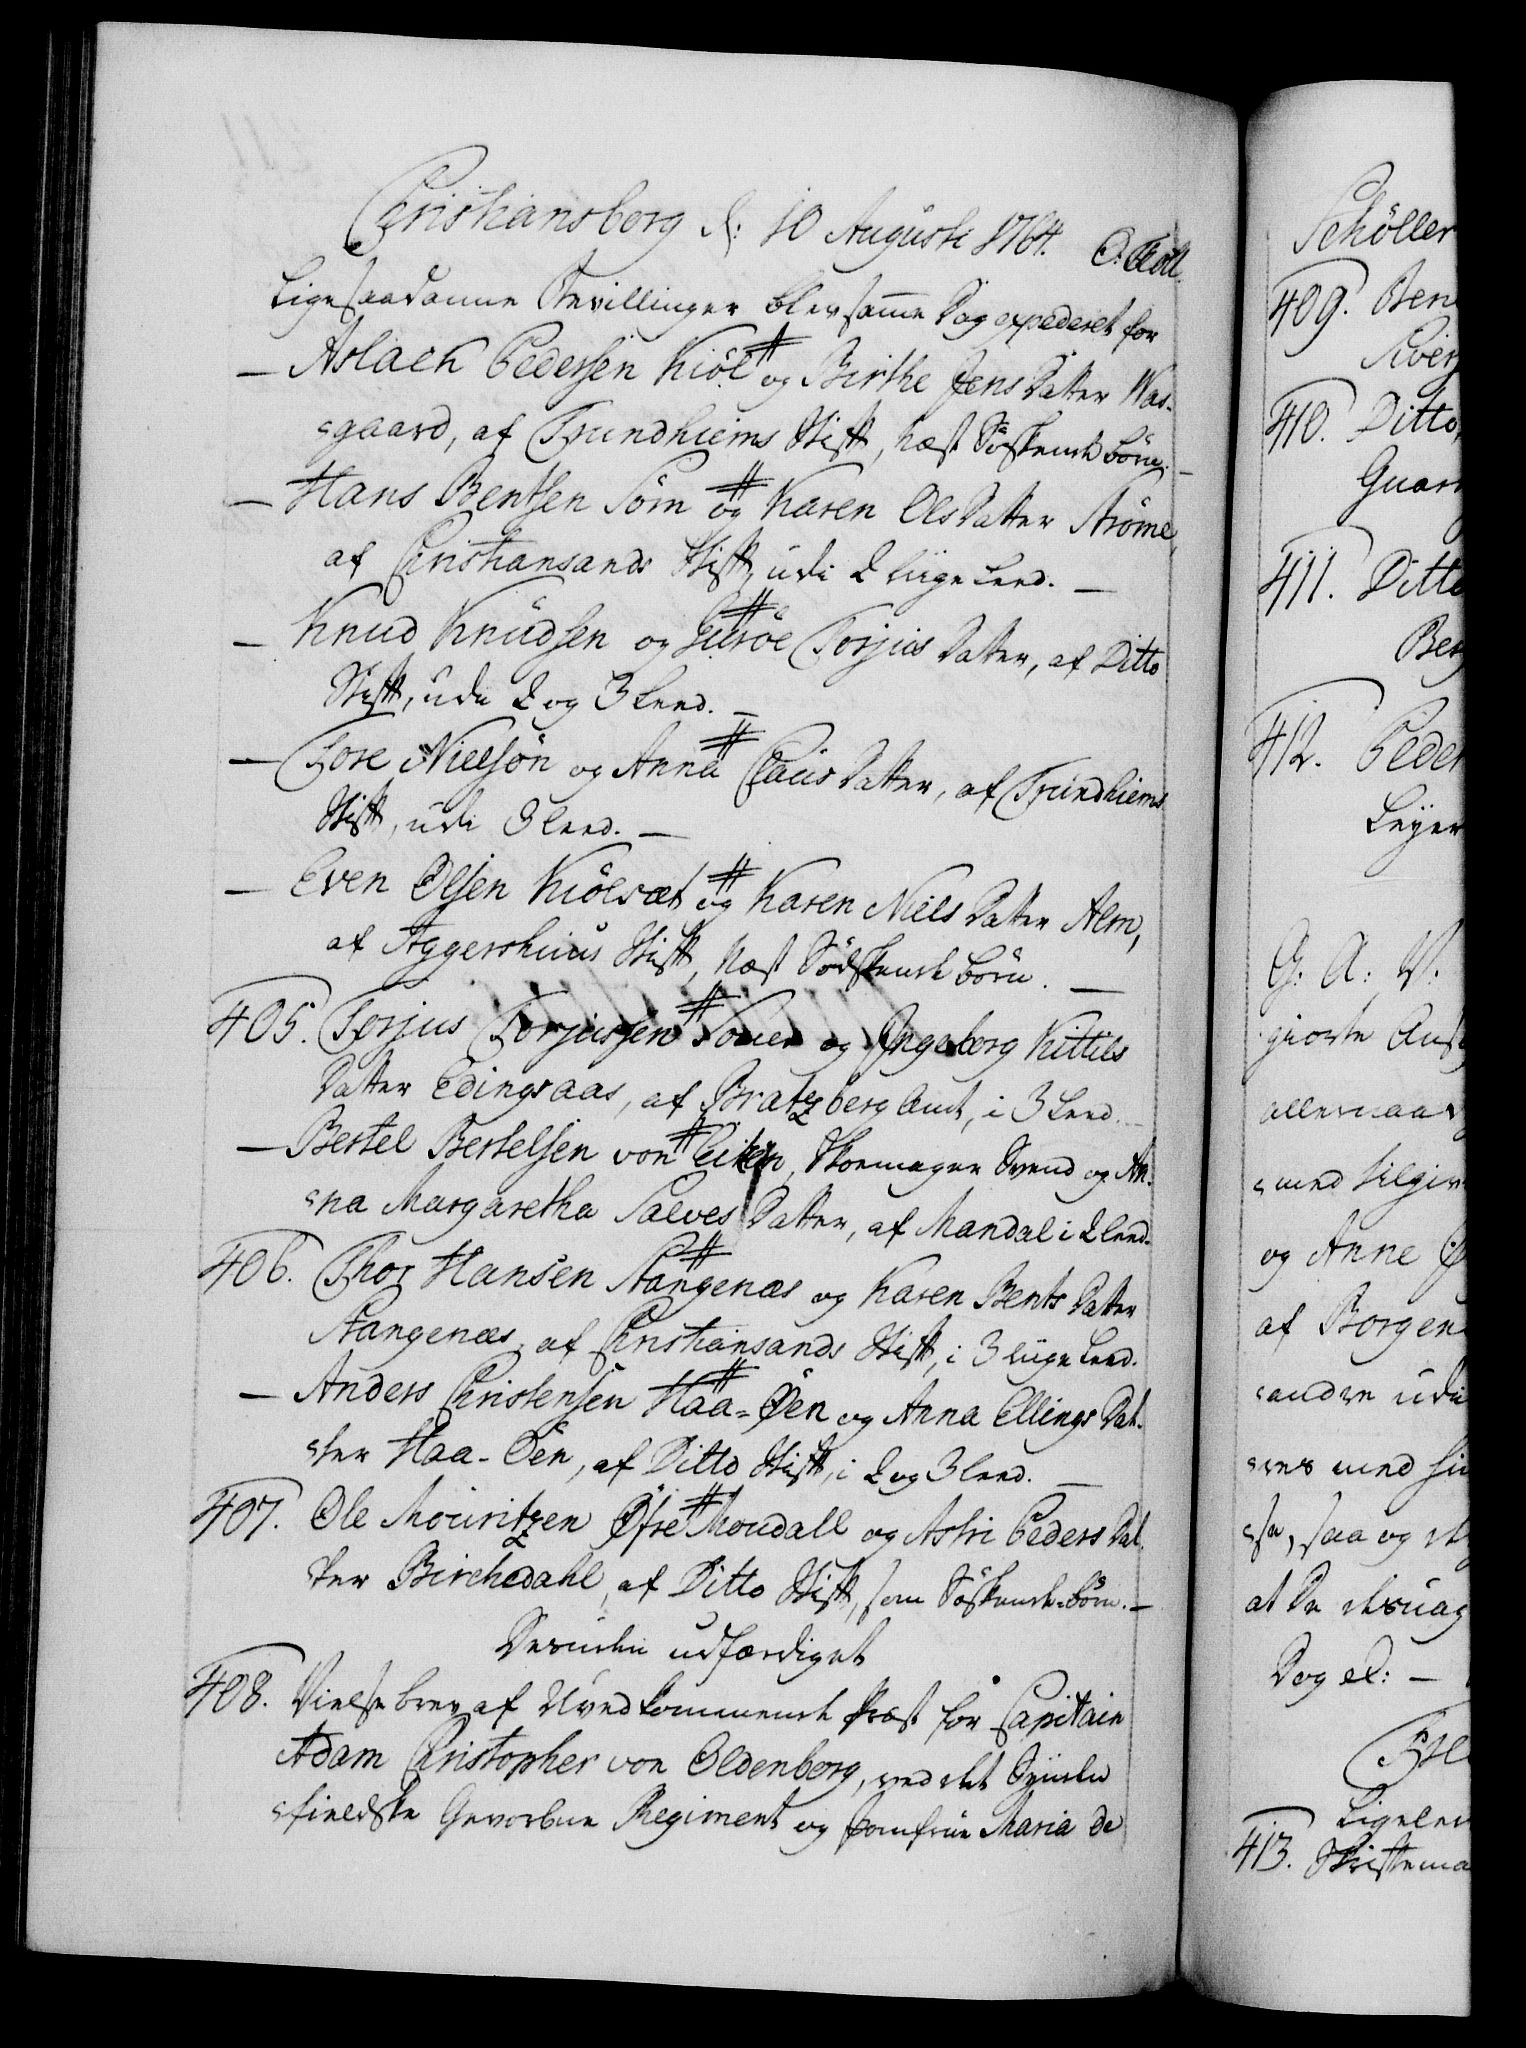 Christiansborg d: 10 Augusti 1764.
Ligesaadanne Bevillinger blev samme Dag expederet for
— Aslach Pedersen Kiöl og Birthe Jens Datter Was-
gaard, af Trundhiems Stift, Næst Södskende börn. —
— Hans Bentsen Töm og Karen Ols Datter Ströme,
af Christiansands Stift, udi 2 liige Leed. —
— Knud Knudsen og Guröe Torjus Datter, af Ditto
Stift, udi 2 og 3 Leed. —
— Tore Nielsön og Anna Claus Datter, af Trundhiems
Stift, udi 3 Leed. —
— Even Olsen Kiölsæt og Karen Niels Datter Alm,
af Aggershuus Stift, Næst Södskende börn. —
405. Torjus Torjussen og Ingeborg Kittils
Datter Edingsaas, af Bratzberg Amt, i 3 Leed. —
— Bertel Bertelsen von Eiken, Skoemager Svend og An-
na Margaretha Salves Datter, af Mandal i 2 Leed.
406. Thor Hansen Stangenæs og Karen Bents Datter
Stangenæs, af Christiansands Stift, i 3 liige Leed.
— Anders Christensen Haa-Øen og Anna Ellings Dat-
ter Haa-Øen, af Ditto Stift, i 2 og 3 Leed. —
407. Ole Mouritzen Öfre Moudall og Astri Peders Dat-
ter Birchedahl, af Ditto Stift, som Södskende-börn. —
Desuden udfærdiget
408. Vielse brev af Uvedkommende Præst for Capitain
Adam Christopher von Oldenborg, ved det Synden
fieldske Gevorbne Regiment og Jomfrue Maria de
Schöller
409. Ben
410. Ditto
411. Ditto
412. Peder
Leyer
G: A: V:
giorte
og Anne
af Borgen
413.